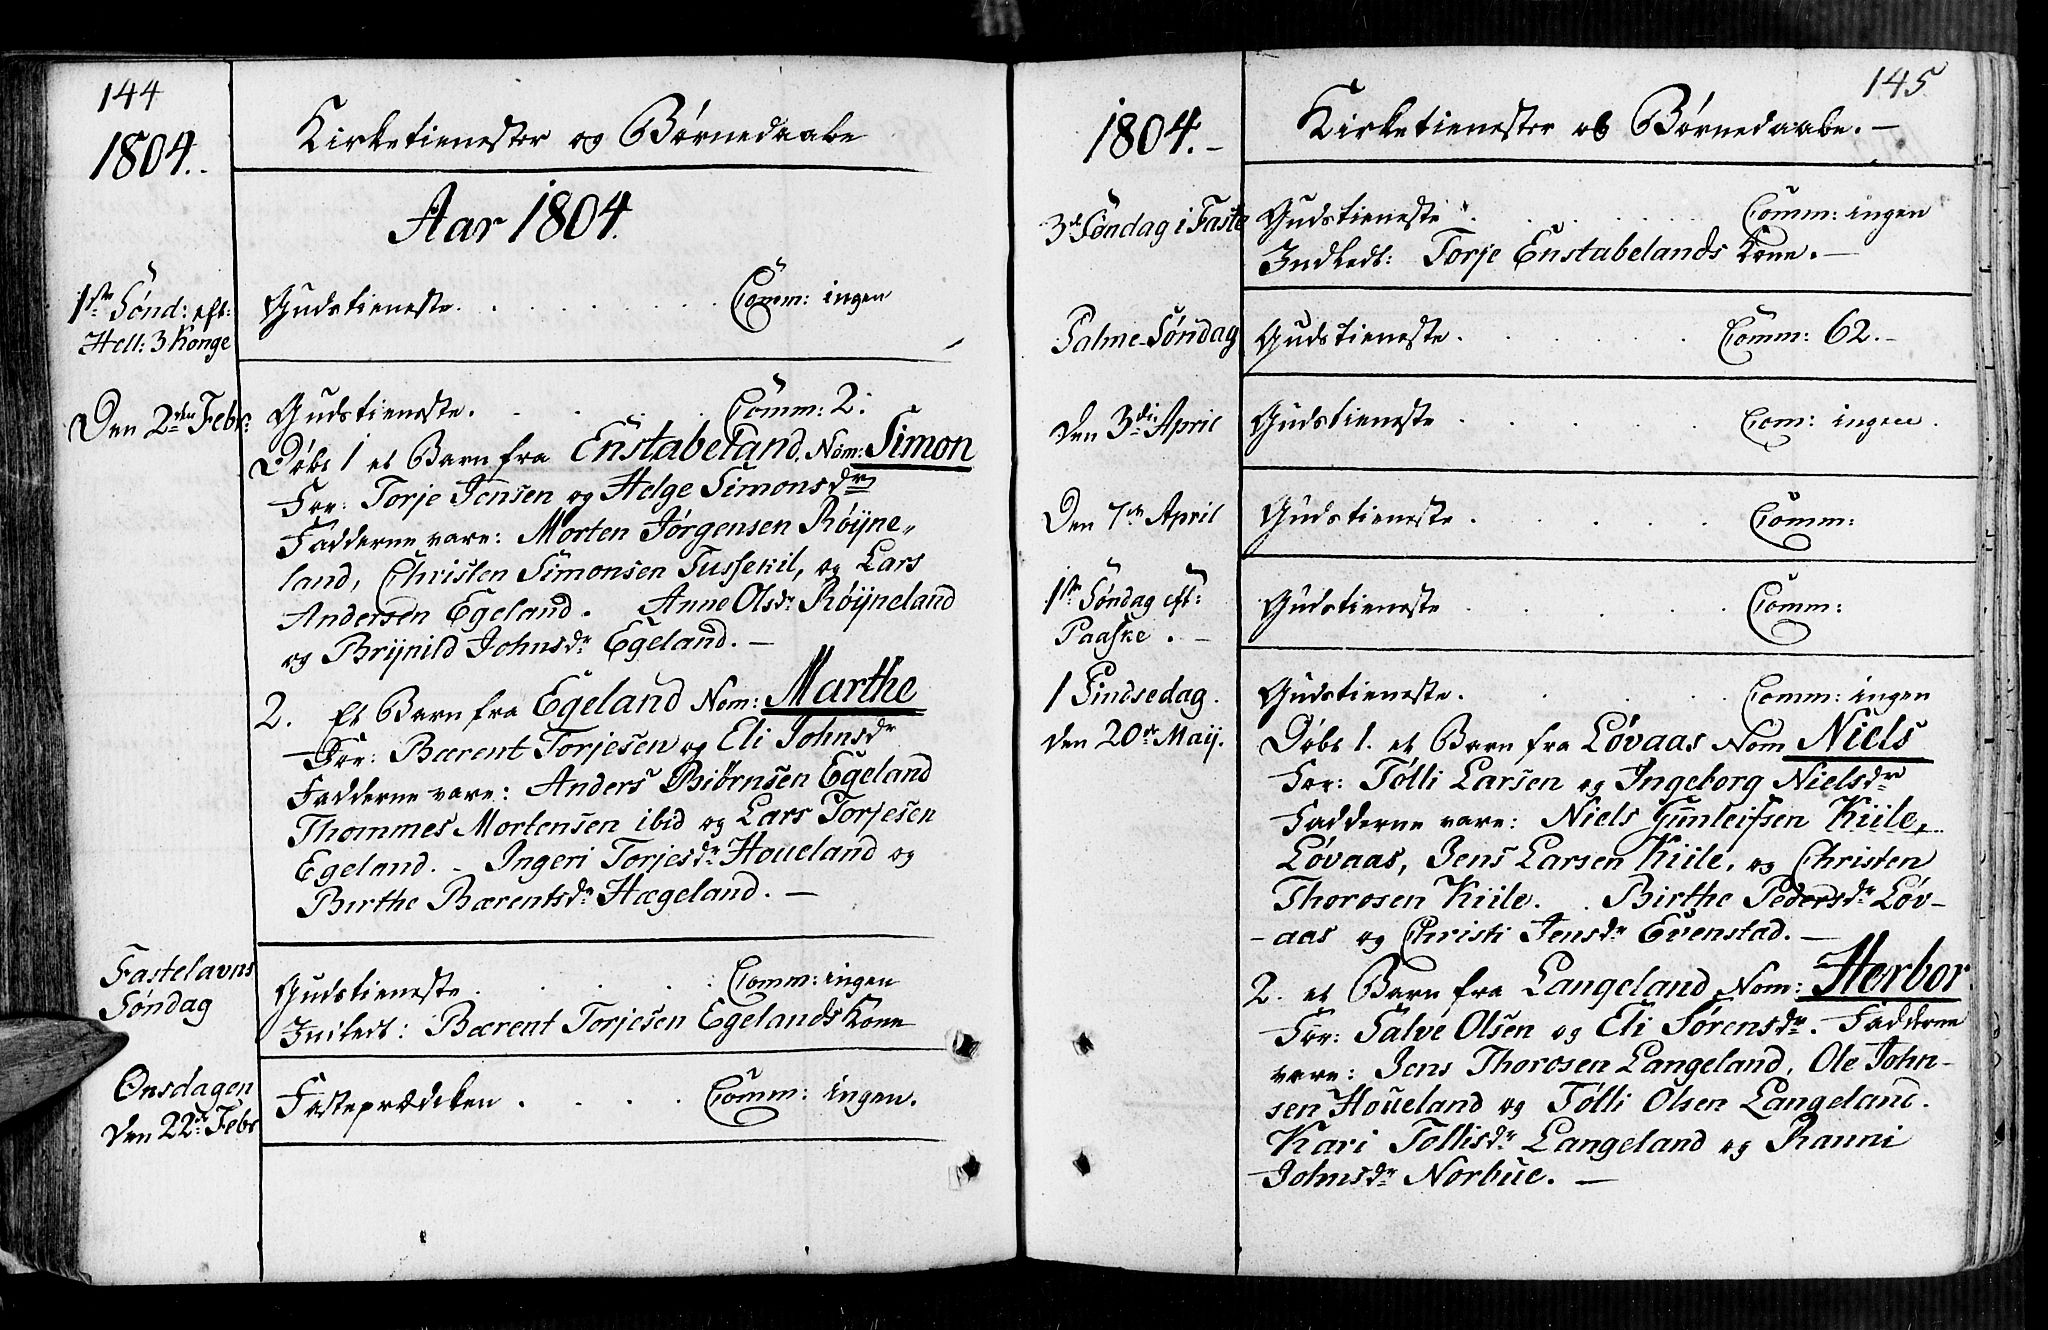 144
1804.
Kirketienester og Børnedaabe
Aar 1804.
1ste Sønd: eft:
Hell: 3 Konge
Gudstieneste. Comm: ingen
Den 2den Febr:
Gudstieneste. Comm: 2.
Døbt 1 et Barn fra Enstabeland. Nom: Simon
For: Torje Jensen og Helge Simonsdr
Fadderne vare: Morten Jørgensen Røyne-
land, Christen Simonsen Tussekil, og Lars
Andersen Egeland. Anne Olsdr Røyneland
og Brynild Johnsdr Egeland. —
2. Et Barn fra Egeland Nom: Marthe
For: Bærent Torjesen og Eli Johnsdr
Fadderne vare: Anders Biörnsen Egeland
Thommes Mortensen ibid og Lars Torjesen
Egeland. - Ingeri Torjesdr Houeland og
Birthe Bærentsdr Hægeland. —
Fastelavns
Søndag
Gudstieneste. Comm: ingen
Indledt: Bærent Torjesen Egelands Kone
Onsdagen
den 22de Febr
Fasteprædiken. Comm: ingen.
145
1804. -
Kirketienester og Børnedaabe. —
3de Søndag i Faste
Gudstieneste. Comm: ingen
Indledt: Torje Enstabelands Kone. —
Palme-Søndag
Gudstieneste. Comm: 62. -
den 3die April
Gudstieneste. Com: ingen.
Den 7de April
Gudstieneste. Comm:
1ste Søndag eft:
Paaske. -
Gudstieneste Comm:
1 Pindsedag.
den 20de Maij.
Gudstieneste. Comm: ingen
Døbt 1. et Barn fra Løvaas Nom Niels
For: Tølli Larsen og Ingeborg Nielsdr
Fadderne vare: Niels Gunleifsen Kiile,
Løvaas, Jens Larsen Kiile, og Christen
Thorosen Kiile. Birthe Pedersdr Løv-
-aas og Christi Jensdr Evenstad. —
2. et Barn fra Langeland Nom: Herbor
For: Salve Olsen og Eli Sørensdr. Fadderne
vare: Jens Thorosen Langeland, Ole John-
sen Houeland og Tølli Olsen Langeland.
Kari Tollisdr Langeland og Ranni
Johnsdr Norbue. —